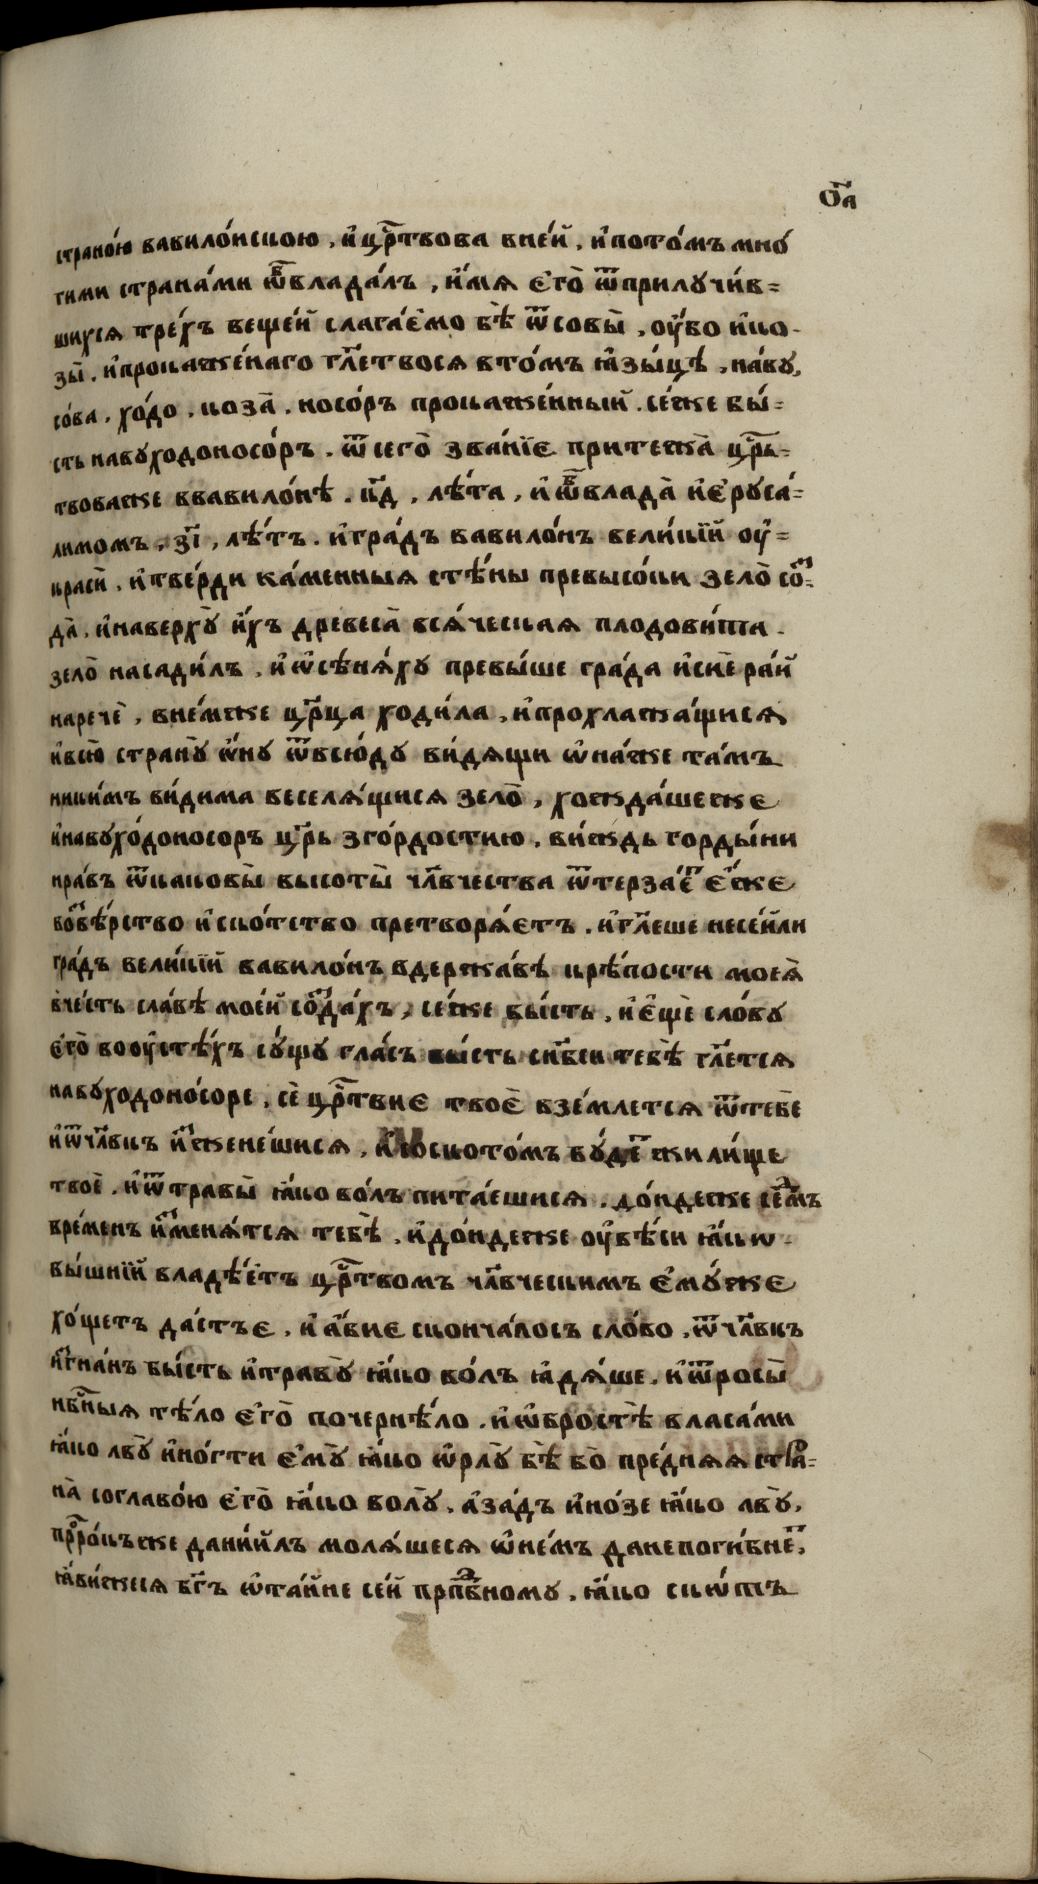 ѻ҃а
страно́ю вавило́нскою, и҆ црⷭ҇твова вне́й, и҆пото́мъ мно́
гими страна́ми ѡ҆бⷧ҇владалъ, и҆мя є҆го̀ ѿприлучи́в=
шихся тре́хъ веще́й слага́ємо бѣ̀ ѿсовы̀, оу҆бо и҆ко-
зы̀, и҆прокаже́наго гл҃етвося вто́мъ ꙗ҆зы́цѣ, на́ву,
со́ва, хо́до, коза̀, носо́ръ прокаже́нный. се́же бы́=
сть навуходоносо́ръ. ѿсего̀ зва́нїє притежа̀ црⷭ҇ь=
твоваже ввавило́нѣ. м҃д, лѣ́та, и҆ѡ҆бвлада̀ и҆є҆руса́=
лимомъ, з҃і, лѣ́тъ. и҆гра́дъ вавило́нъ вели́кїй оу҆=
краси̂, и҆тве́рди ка́менныя стѣ́ны превысо́ки зело̀ соⷥ=
да̀, и҆наверху̀ и҆хъ древеса̀ вся́ческая плодови́та.
зело̀ насади́лъ, и҆ѡ҆сѣня́ху превы́ше гра́да и҆сиѐ ра́й
наречѐ, вне́мже цр҃ца ходи́ла, и҆прохлажа́щися
и҆всю̀ страну̀ ѡ҆ну ѿвсю́ду ви́дящи ѡ҆на́же та́мъ
ники́мъ ви́дима веселя́щися зело̀, хожда́шеже
и҆навухо́доносоръ цр҃ь зго́рдостию, ви́ждь горды́ни
нра́въ ѿкаковы̀ высоты̀ чл҃вчества ѿтерза́єⷮ є҆́же
воѕвѣ́рство и҆ско́тство претворя́єтъ. и҆гл҃еше несе́йли
гра́дъ вели́кїй вавило́нъ вдержа́вѣ крѣ́пости моея̀
вче́сть сла́вѣ мое́й соⷥда́хъ, се́же бы́сть, и҆є҆щѐ сло́ву
є҆го̀ вооу҆стѣ́хъ су́щу гла́съ бы́сть снб҃си тебѣ̀ гл҃ется
навуходоно́соре, сѐ црⷭ҇твиє твоѐ взе́млется ѿтебѐ
и҆ѿчл҃вкъ и҆ⷥжене́шися, и҆соското́мъ бу́деⷮ жили́ще
твоѐ, и҆ѿтравы̀ ꙗ҆ко во́лъ пита́єшися. до́ндеже се́дмъ
вре́менъ и҆ⷥменя́тся тебѣ̀, и҆до́ндеже оу҆вѣ́си ꙗ҆кѡ-
вы́шнїй владѣ́єтъ црⷭ҇твомъ чл҃вческимъ є҆му́же
хо́щетъ да́стъє, и҆а҆биє сконча́лось сло́во, ѿчл҃вкъ
и҆ⷥгна́нъ бы́сть и҆траву̀ ꙗ҆ко во́лъ ꙗ҆дя́ше, и҆ѿросы̀
нбⷭ҇ныя тѣ́ло є҆го̀ почернѣ́ло, и҆ѡ҆бростѣ̀ власа́ми
ꙗ҆ко лву̀ и҆но́гти є҆му̀ ꙗ҆ко ѡ҆рлу̀ бѣ̀ бо̀ пре́дняя стра=
на̀ соглаво́ю є҆го̀ ꙗ҆ко волу̀, а҆за́дъ и҆но́зе ꙗ҆ко лву̀,
прⷪ҇ро́къже дани́илъ моля́шеся ѡ҆не́мъ данепоги́бнеⷮ,
ꙗ҆ви́жеся бг҃ъ ѡ҆та́йне се́й првⷣному, ꙗ҆ко скѡтъ